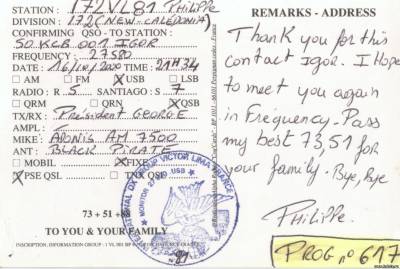 STATION : 172VL81 PHILIPPE
DIVISION : 172 (NEW-CALEDONIA)
CONFIRMING QSO - TO STATION :
50 KCB 001 IGOR
FREQUENCY : 27580
DATE : 16/10/2000 21H34
AM FM USB LSB
RADIO : R 5 SANTIAGO : S 7
QRM QRN QSB
TX/RX : President GEORGE
AMPL :
MIKE : ADONIS AM 7500
ANT : BLACK PIRATE
MOBIL FIXE
PSE QSL TNX QSL
73 + 51 + 88
TO YOU & YOUR FAMILY
REMARKS - ADDRESS
THANK you for this
contact Igor. I Hope
to meet you again
in Frequency. Pass
my best 73,51 for
your family. Bye, Bye
PHILIPPE.
PROG n° 617